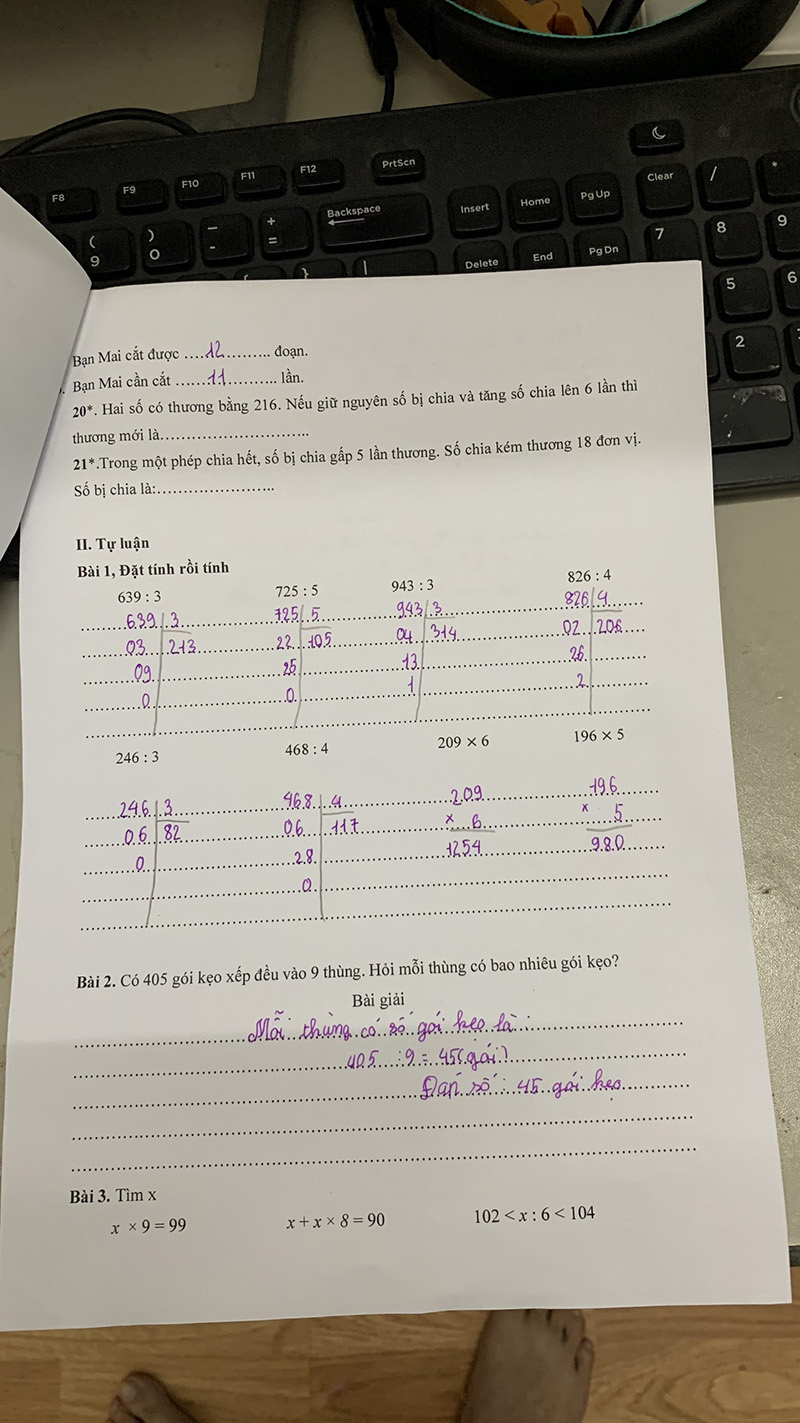 F8
F9
F10
F11
F12
PrtScn
Clear
/
*
( 9
) 0
_ -
+ =
Backspace
Insert
Home
Pg Up
7
8
9
}
|
Delete
End
Pg Dn
5
6
2
Bạn Mai cắt được ....12........... đoạn.
Bạn Mai cần cắt ......11........... lần.
20*. Hai số có thương bằng 216. Nếu giữ nguyên số bị chia và tăng số chia lên 6 lần thì
thương mới là..............................
21*.Trong một phép chia hết, số bị chia gấp 5 lần thương. Số chia kém thương 18 đơn vị.
Số bị chia là:.......................
II. Tự luận
Bài 1, Đặt tính rồi tính
639 : 3 725 : 5 943 : 3 826 : 4
639 3 725 5 943 3 826 4
03 213 22 105 04 314 02 206
09 25 13 26
0 0 1 2
246 : 3 468 : 4 209 × 6 196 × 5
246 3 468 4 209 196
06 82 06 117 × 6 × 5
0 28 1254 980
0
Bài 2. Có 405 gói kẹo xếp đều vào 9 thùng. Hỏi mỗi thùng có bao nhiêu gói kẹo?
Bài giải
Mỗi thùng có số gói kẹo là :
405 : 9 = 45 (gói)
Đáp số : 45 gói kẹo
Bài 3. Tìm x
x × 9 = 99 x + x × 8 = 90 102 < x : 6 < 104